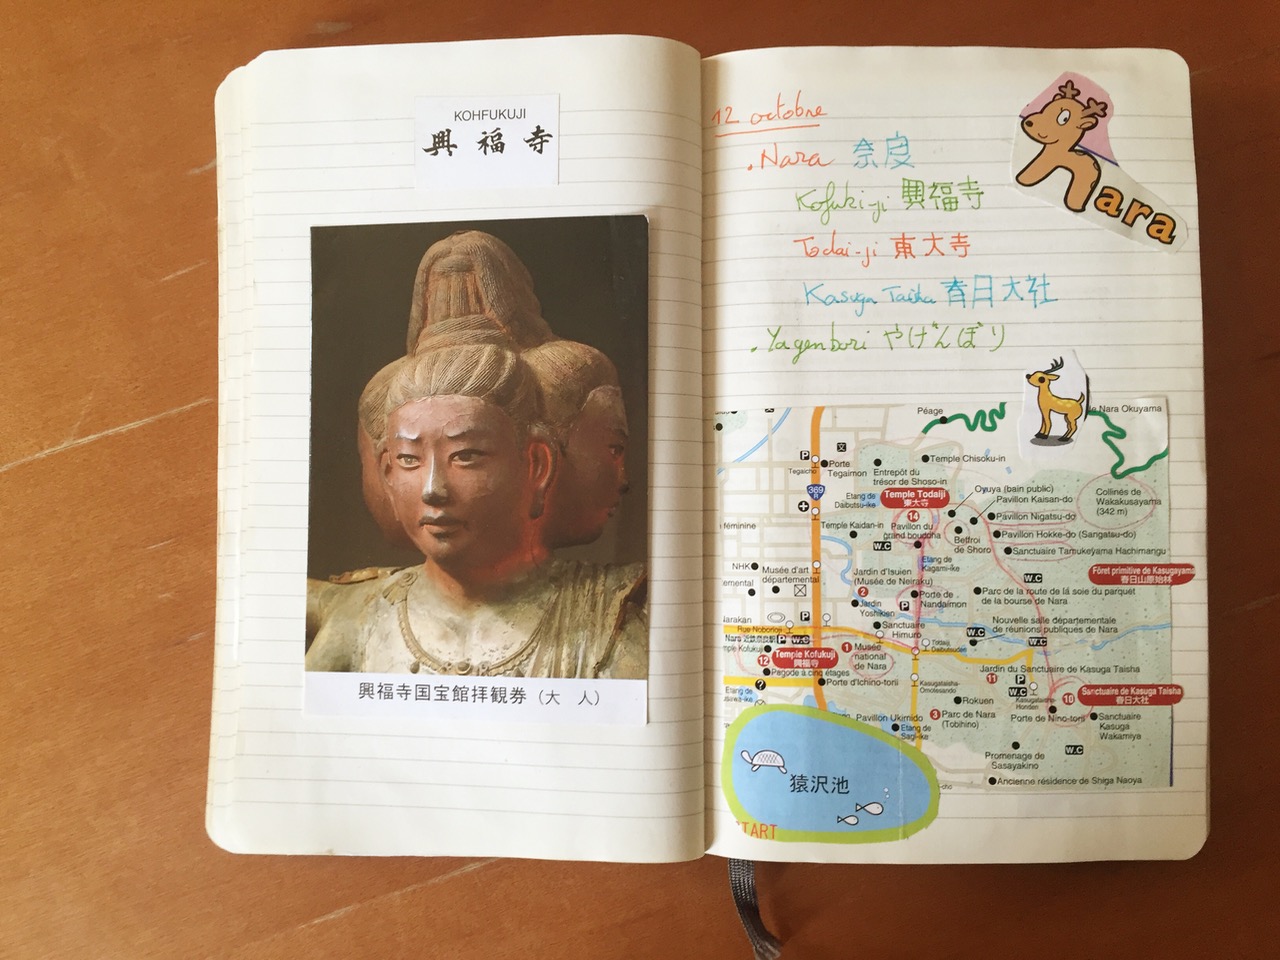 KOHFUKUJI
興福寺
興福寺国宝館拝観券（大 人）
12 octobre
. Nara 奈良
Kofuki-ji 興福寺
Todai-ji 東大寺
Kasuga Taisha 春日大社
. Yagenbori やげんぼり
nara
Péage
de Nara Okuyama
Temple Chisoku-in
Porte
Tegaimon
Tegaicho
Entrepôt du
trésor de Shoso-in
369
R
Etang de
Daibutsu-ike
Temple Todaiji
東大寺
14
Oyuya (bain public)
Pavillon Kaisan-do
Collines de
Wakakusayama
(342 m)
Pavillon Nigatsu-do
féminine
Temple Kaidan-in
Pavillon du
grand bouddha
Beffroi
de Shoro
Pavillon Hokke-do (Sangatsu-do)
W.C
Sanctuaire Tamukeyama Hachimangu
Etang de
Kagami-ike
NHK
Musée d'art
départemental
Jardin d'Isuien
(Musée de Neiraku)
2
W.C
Fôret primitive de Kasugayama
春日山原始林
Parc de la route de la soie du parquet
de la bourse de Nara
Porte de
Nandaimon
Jardin
Yoshikien
P
Rue Noborioji
Sanctuaire
Himuro
Nouvelle salle départementale
de réunions publiques de Nara
W.C
W.C
Nara 近鉄奈良駅
P
W.C
Todaiji
Daibutsuden
Temple Kofukuji
興福寺
12
1
Musée
national
de Nara
Pagode à cinq étages
Porte d'Ichino-torii
Jardin du Sanctuaire de Kasuga Taisha
11
P
W.C
Kasugataisha-
Omotesando
Kasugataisha-
Honden
10
Sanctuaire de Kasuga Taisha
春日大社
Rokuen
Pavillon Ukimido
3
Parc de Nara
(Tobihino)
Porte de Nino-torii
Sanctuaire
Kasuga
Wakamiya
Etang de
Sagi-ike
W.C
Promenade de
Sasayakino
Ancienne résidence de Shiga Naoya
猿沢池
START